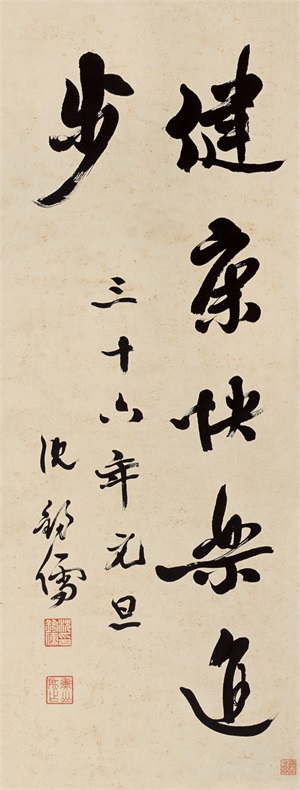 健康快樂進
步
三十六年元旦
沈鈞儒